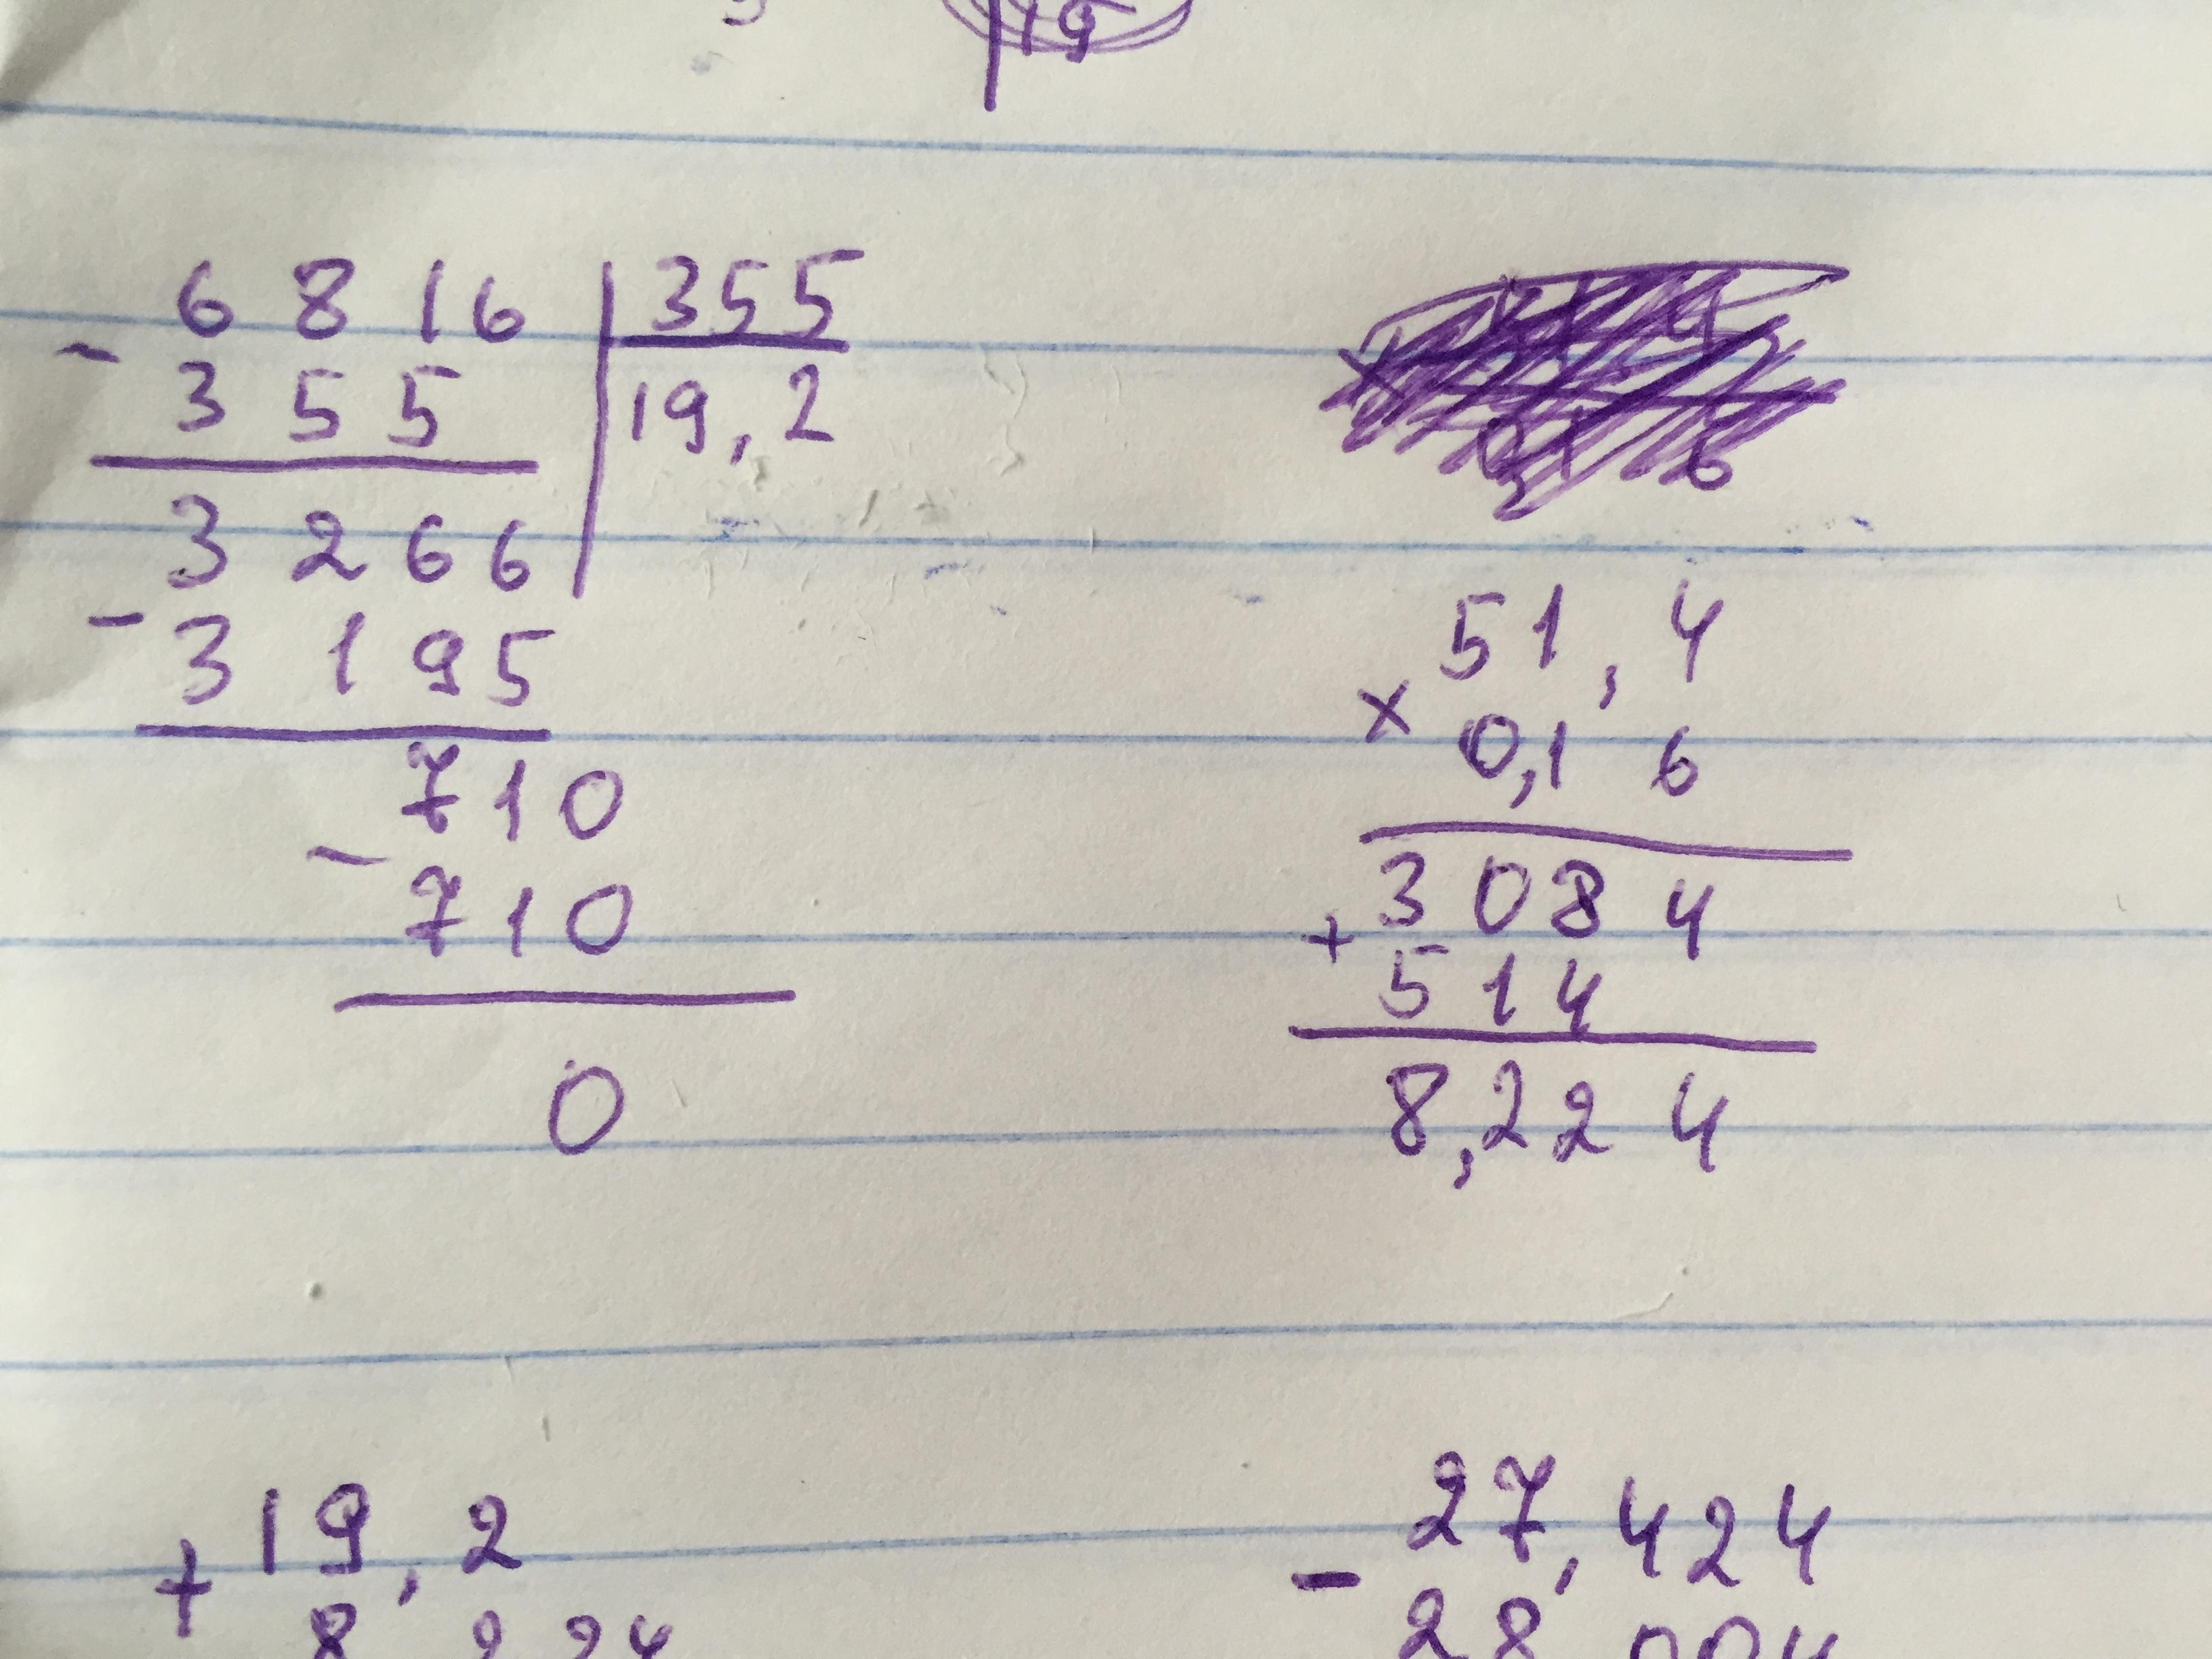 19
6 8 1 6 | 355
- 3 5 5 | 19,2
3 2 6 6
- 3 1 9 5
7 1 0
- 7 1 0
0
51,4
× 0,1 6
3 0 8 4
+ 5 1 4
8,2 2 4
+ 19,2
8 2 2 4
27,424
- 28 004